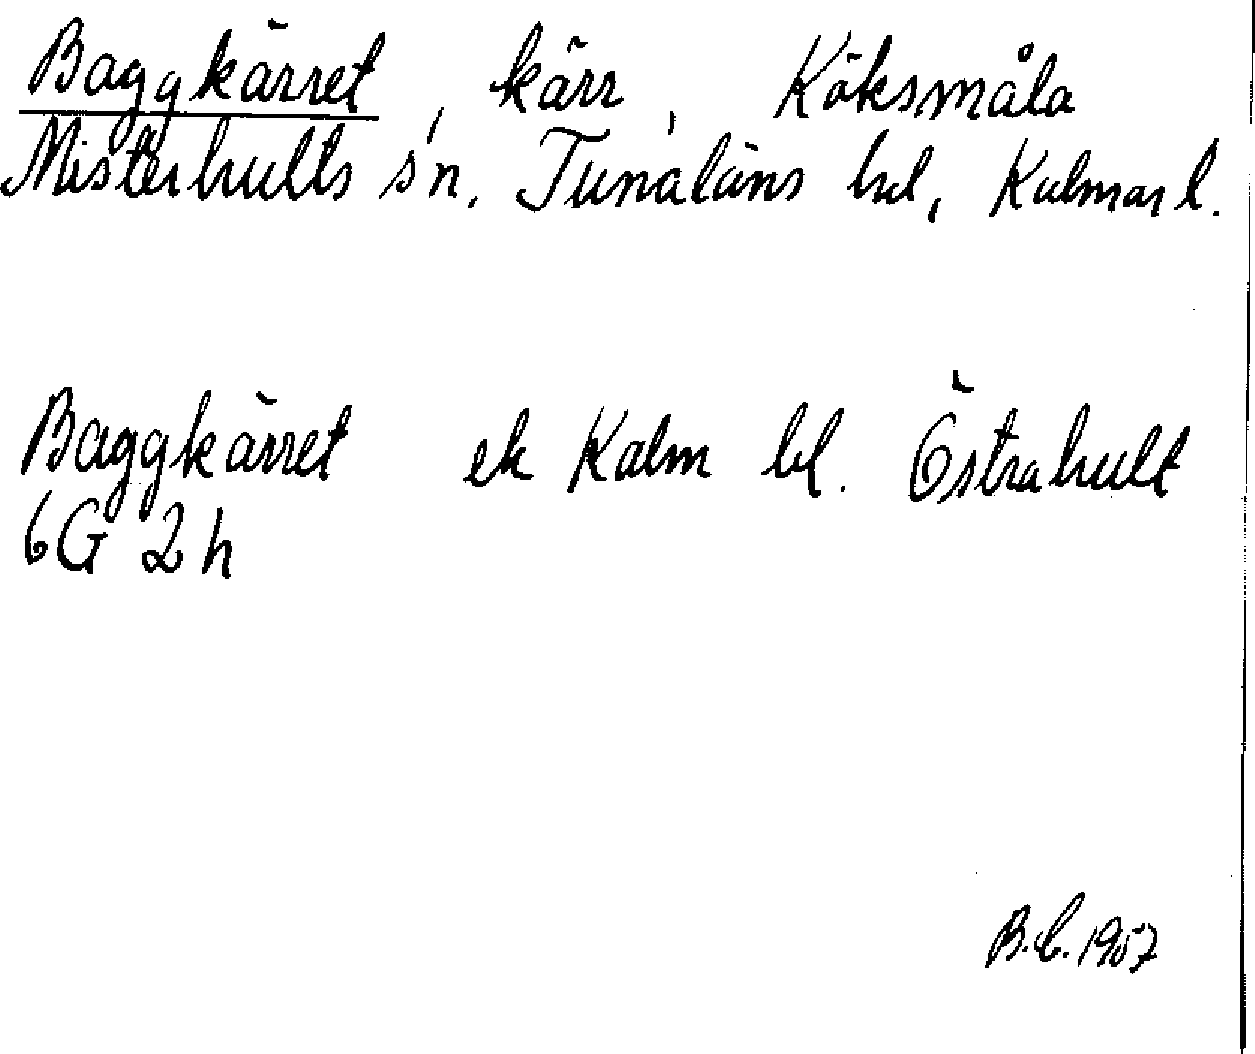 Baggkärret, kärr, Köksmåla
Misterhults sn. Tunaläns hd, Kalmar l.
Baggkärret ek Kalm bl. Östrahult
6G 2h
B.C. 1957